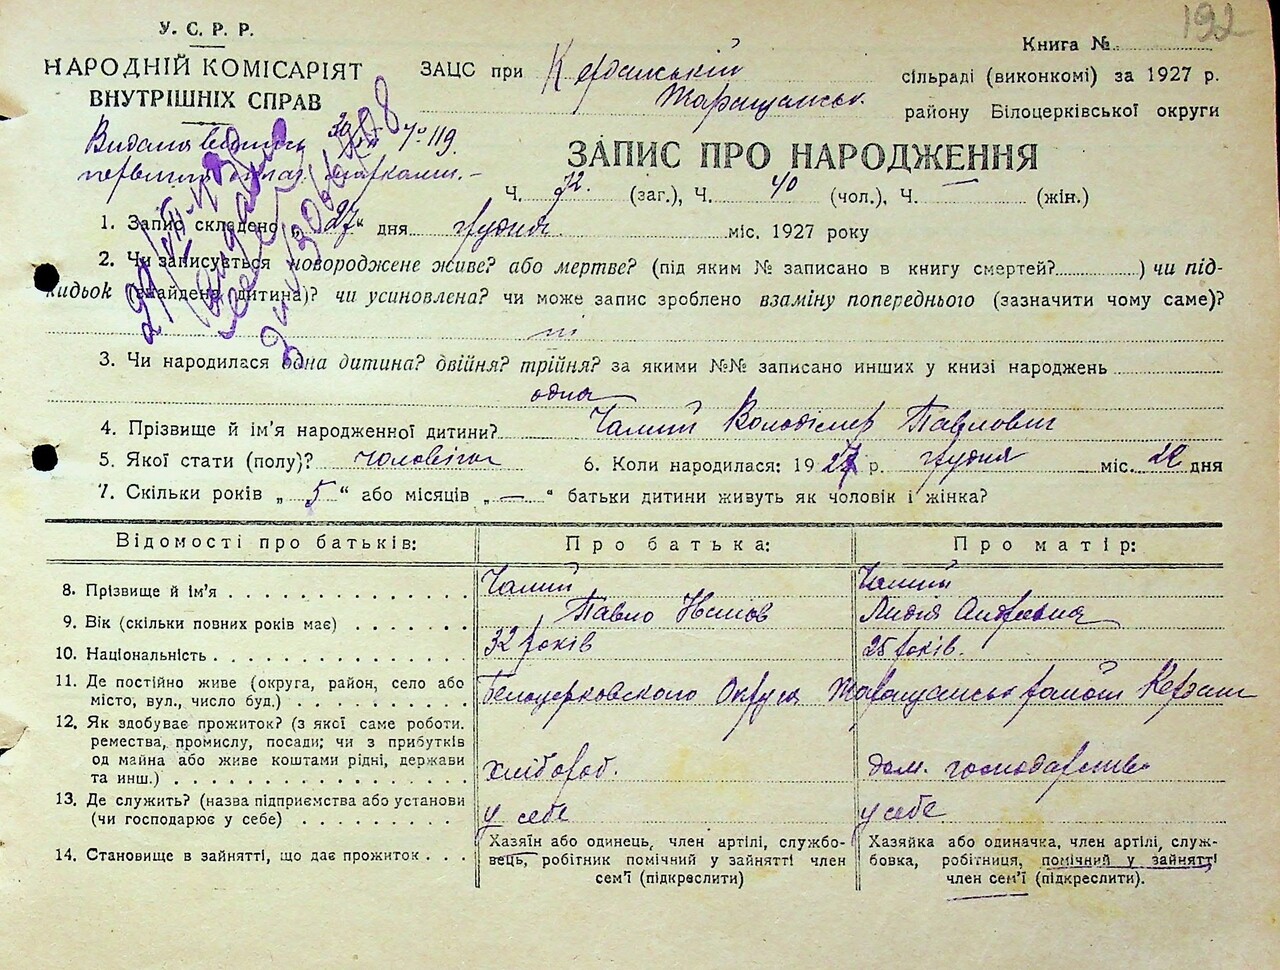 192
У. С. Р. Р.
НАРОДНІЙ КОМІСАРІЯТ
ВНУТРІШНІХ СПРАВ
Книга №
ЗАЦС при Керданській сільраді (виконкомі) за 1927 р.
Таращанськ. району Білоцерківської округи
ЗАПИС ПРО НАРОДЖЕННЯ
Ч. 72. (заг.), Ч. 40 (чол.), Ч. — (жін.)
1. Запис складено „27“ дня грудня міс. 1927 року
2. Чи записується новороджене живе? або мертве? (під яким № записано в книгу смертей?) чи під-
кидьок (знайдена дитина)? чи усиновлена? чи може запис зроблено взаміну попереднього (зазначити чому саме)?
ні
3. Чи народилася одна дитина? двійня? трійня? за якими №№ записано инших у книзі народжень
одна
4. Прізвище й ім'я народженної дитини? Чалий Володімер Павлович
5. Якої стати (полу)? чоловіча 6. Коли народилася: 1927 р. грудня міс. 22 дня
7. Скільки років „ 5 “ або місяців „ — “ батьки дитини живуть як чоловік і жінка?
Відомості про батьків: Про батька: Про матір:
8. Прізвище й ім'я Чалий Чалий
Павло Иванов Лидия Андреевна
9. Вік (скільки повних років має) 32 років 25 років.
10. Національність
11. Де постійно живе (округа, район, село або
місто, вул., число буд.) Белоцерковского Округа Таращанськ район Кердан
12. Як здобуває прожиток? (з якої саме роботи.
ремества, промислу, посади; чи з прибутків
од майна або живе коштами рідні, держави
та инш.) хлібороб. дом. господарство
13. Де служить? (назва підприємства або установи
(чи господарює у себе) у себе у себе
14. Становище в зайнятті, що дає прожиток
Хазяїн або одинець, член артілі, службо-
вець, робітник помічний у зайнятті член
сем'ї (підкреслити)
Хазяйка або одиначка, член артілі, служ-
бовка, робітниця, помічний у зайнятті
член сем'ї (підкреслити).